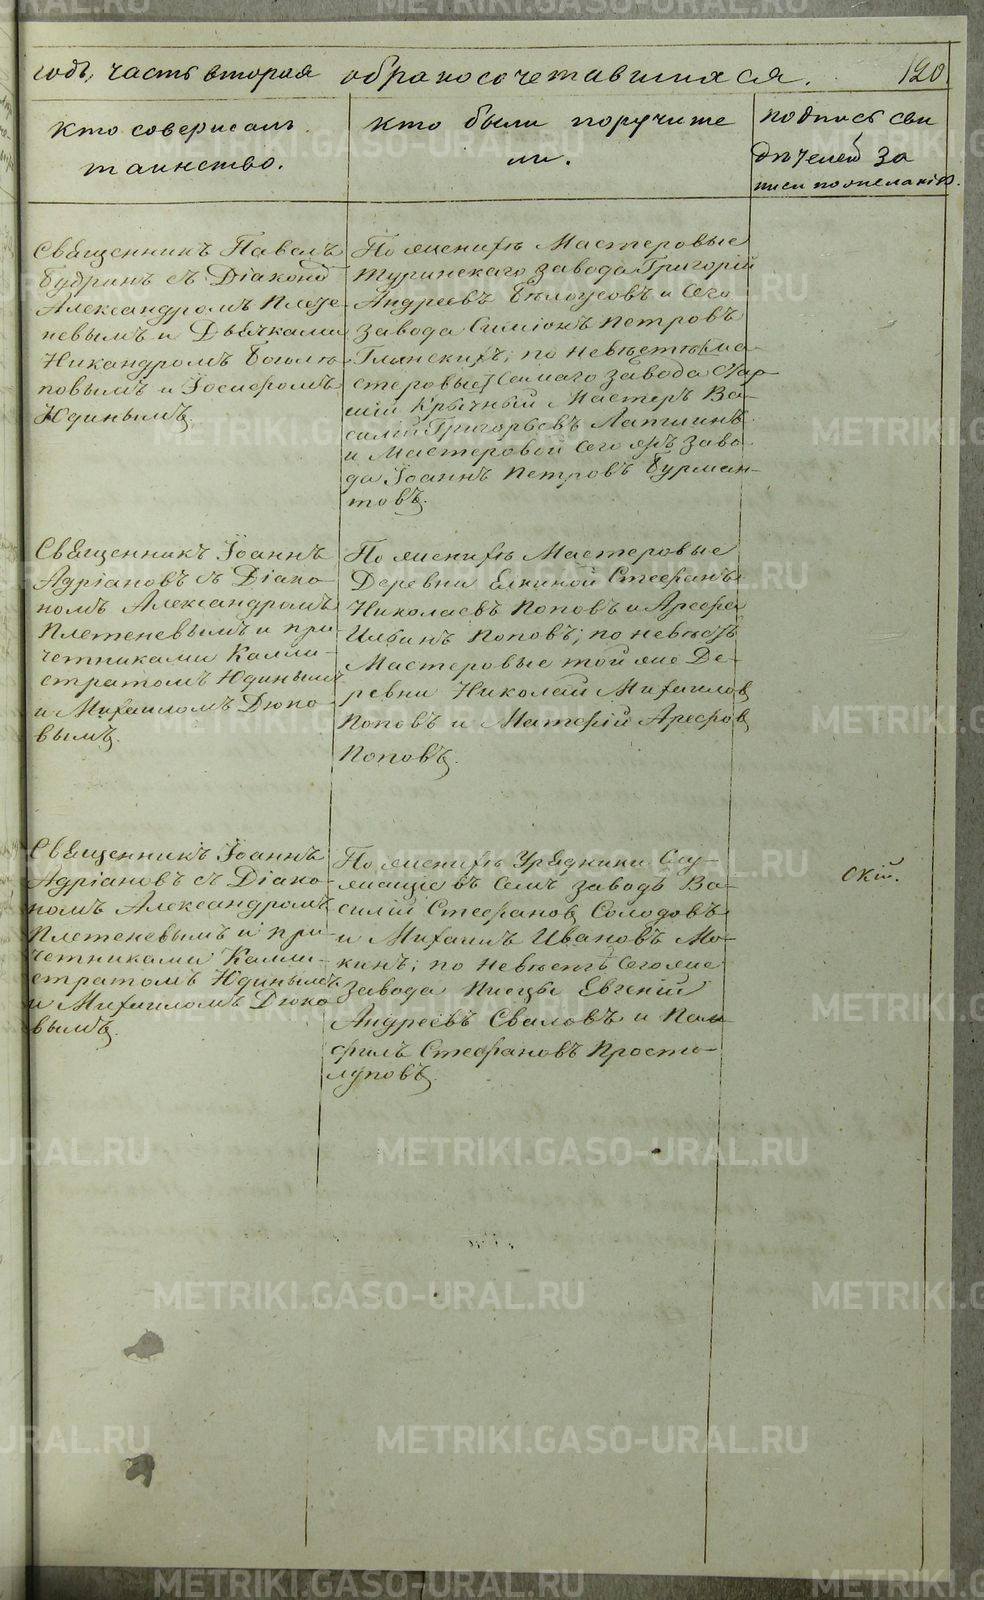 годъ, часть вторая о бракосочетавшихся. 120
Кто совершалъ
таинство.
Кто были поручите
ли.
подпись сви
дѣтелей за
писи по желанію.
Священникъ Павелъ
Будринъ съ Діакономъ
Александромъ Плете-
невымъ и Дьячками
Никандромъ Боголѣ-
повымъ и Іосифомъ
Юдинымъ.
По женихѣ Мастеровые
Туринскаго завода Григорій
Андреевъ Бѣлоусовъ и Сего
завода Симіонъ Петровъ
Глинскихъ; по невѣстѣ ма-
стеровые Самаго завода Стар-
шій Крычный Мастеръ Ва-
силій Григорьевъ Лапшинъ
и Мастеровой Сего жъ заво-
да Іоаннъ Петровъ Бурман-
товъ.
Священникъ Іоаннъ
Адріановъ съ Діако-
номъ Александромъ
Плетеневымъ и при-
четниками Калли-
стратомъ Юдинымъ
и Михаиломъ Дюко-
вымъ.
По женихѣ Мастеровые
Деревни Елкиной Стефанъ
Николаевъ Поповъ и Арефа
Поповъ; по невѣстѣ
Мастеровые той же Де-
ревни Николай Михаилов
Поповъ и Матфій Арефов
Поповъ.
Священникъ Іоаннъ
Адріановъ съ Діако-
номъ Александромъ
Плетеневымъ и при-
четниками Калли-
стратомъ Юдинымъ
и Михаиломъ Дюко
вымъ.
По женихѣ Урядники Слу-
жащіе въ Семъ заводѣ Ва-
силій Стефанов Солодовъ
и Михаилъ Ивановъ Мо-
кинъ; по невѣстѣ Сего же
завода Писцы Евгеній
Андреевъ Сваловъ и Пам
филъ Стефановъ Просто-
луповъ.
скій.
METRIKI.GASO-URAL.RU